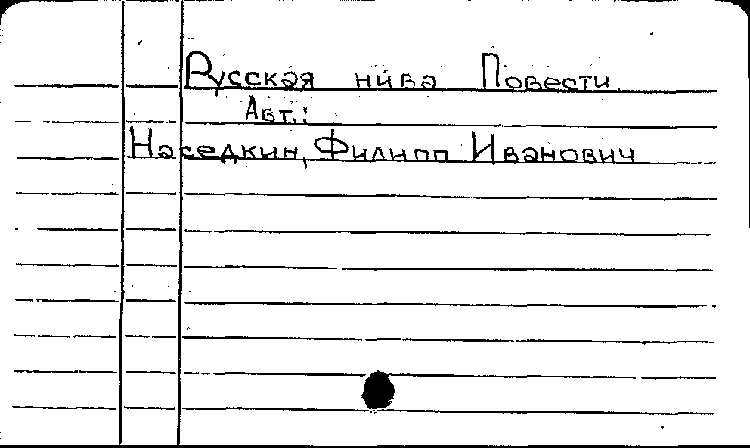 Русская нива Повести.
Авт.:
Наседкин, Филипп Иванович